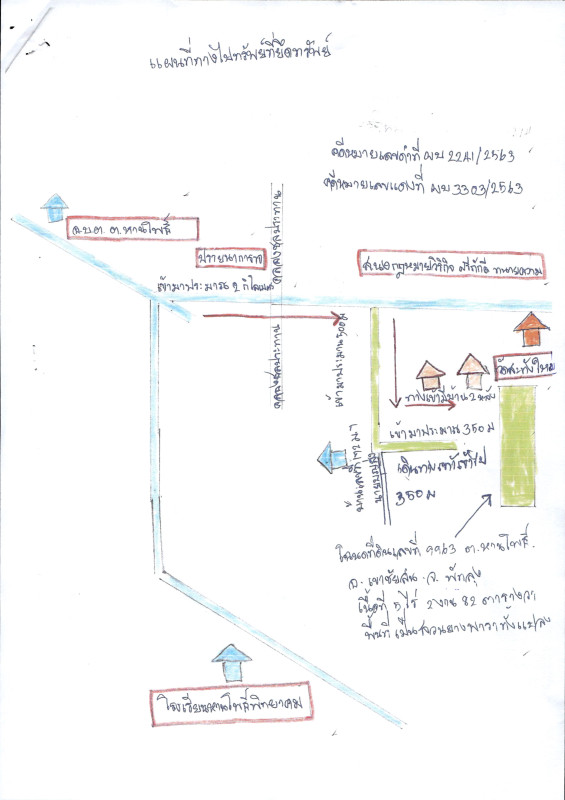 แผนที่ทางไปทรัพย์ที่ยึดทรัพย์
คดีหมายเลขดำที่ ผบ 2241/2563
คดีหมายเลขแดงที่ ผบ 3303/2563
อ.บ.ต. ต.หานโพธิ์
คลองชลประทาน
เข้ามาประมาณ 2 กิโลเมตร
สนง.กฎหมายวิรักิจ ทนายความ
คลองชลประทาน
เข้ามาประมาณ 500 ม
วัดสะทังใหญ่
ทางเข้ามีบ้าน 2 หลัง
เข้ามาประมาณ 350 ม
350 ม
โฉนดที่ดินเลขที่ 9963 ต.หานโพธิ์.
อ. เขาชัยสน จ. พัทลุง
เนื้อที่ 5 ไร่ 2 งาน 82 ตารางวา
พื้นที่เป็นสวนยางพาราทั้งแปลง
โรงเรียนหานโพธิ์พิทยาคม